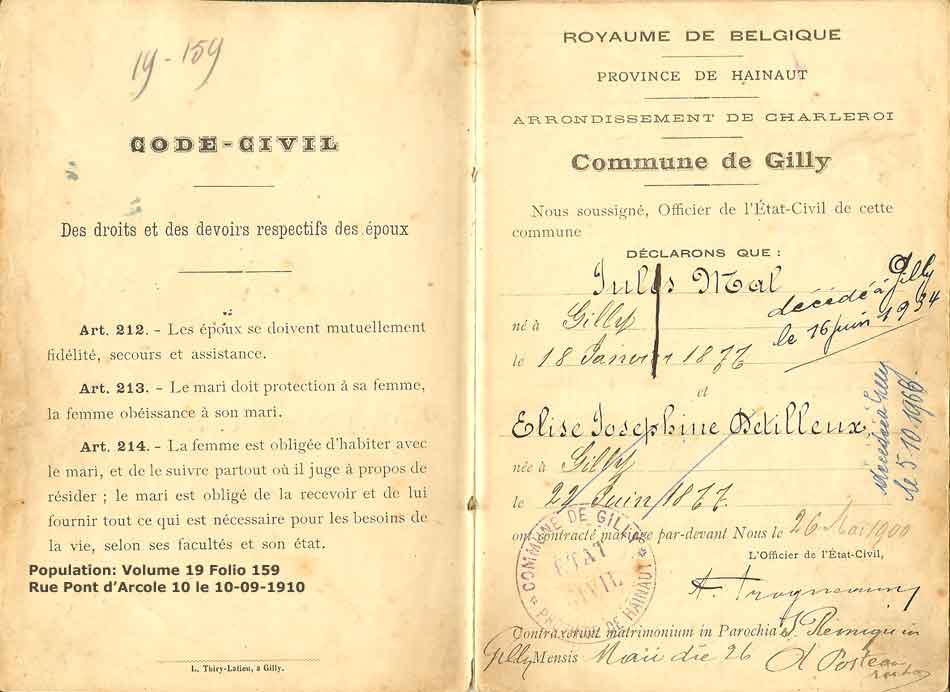 19-159
CODE-CIVIL
Des droits et des devoirs respectifs des époux
Art. 212. - Les époux se doivent mutuellement
fidélité, secours et assistance.
Art. 213. - Le mari doit protection à sa femme,
la femme obéissance à son mari.
Art. 214. - La femme est obligée d'habiter avec
le mari, et de le suivre partout où il juge à propos de
résider ; le mari est obligé de la recevoir et de lui
fournir tout ce qui est nécessaire pour les besoins de
la vie, selon ses facultés et son état.
Population: Volume 19 Folio 159
Rue Pont d'Arcole 10 le 10-09-1910
L. Thiry-Latieu, à Gilly.
ROYAUME DE BELGIQUE
PROVINCE DE HAINAUT
ARRONDISSEMENT DE CHARLEROI
Commune de Gilly
Nous soussigné, Officier de l'État-Civil de cette
commune
DÉCLARONS QUE :
Jules Mal
né à Gilly
le 18 Janvier 1877
décédé à Gilly
le 16 juin 1934
et
Elise Josephine Detilleux,
née à Gilly
le 22 Juin 1877
décédée à Gilly
le 5.10.1966.
ont contracté mariage par-devant Nous le 26 Mai 1900
L'Officier de l'État-Civil,
COMMUNE DE GILLY
ETAT
CIVIL
PROVINCE DE HAINAUT
Contraxerunt matrimonium in Parochia S. Remigii in
Gilly Mensis Maii die 26